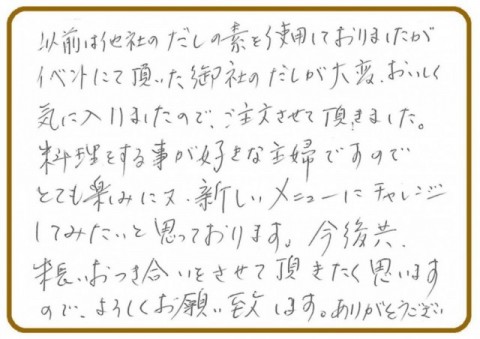 以前は他社のだしの素を使用しておりましたが
イベントにて頂いた御社のだしが大変、おいしく
気に入りましたので、ご注文させて頂きました。
料理をする事が好きな主婦ですので
とても楽しみに又、新しいメニューにチャレンジ
してみたいと思っております。今後共、
末長いおつき合いをさせて頂きたく思います
ので、よろしくお願い致します。ありがとうござい